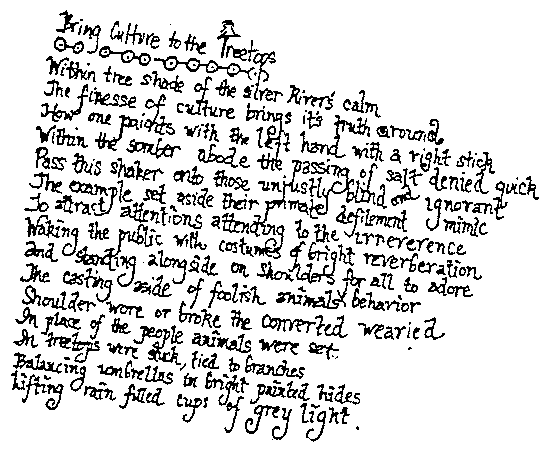 Bring Culture to the Treetops
Within tree shade of the silver River's calm
The finesse of culture brings it's truth around,
How one paints with the left hand with a right stick
Within the somber abode the passing of salt denied quick
Pass this shaker onto those unjustly blind and ignorant
The example set aside their primate defilement mimic
To attract attentions attending to the irreverence
Waking the public with costumes & bright reverberation
and standing alongside on shoulders for all to adore
The casting aside of foolish animals behavior
Shoulder wore or broke the converted wearied
In place of the people animals were set.
In treetops were stuck, tied to branches
Balancing umbrellas in bright painted hides
Lifting rain filled cups of grey light.